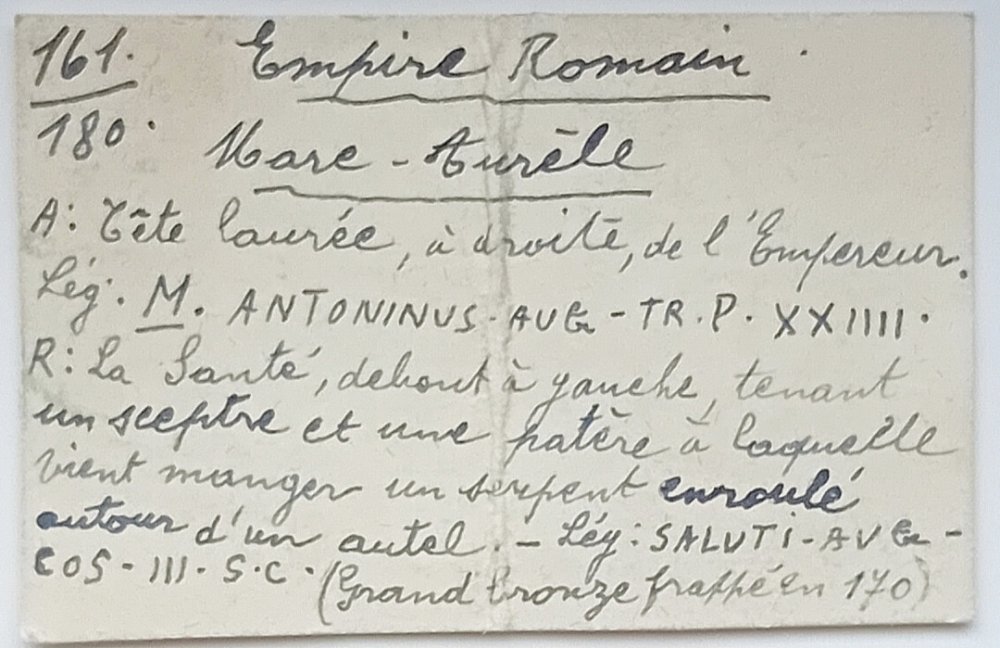 161. Empire Romain
180. Marc-Aurèle
A: Tête laurée, à droite, de l'Empereur.
Lég. M. ANTONINUS. AUG - TR. P. XXIIII.
R: La Santé, debout à gauche, tenant
un sceptre et une patère à laquelle
vient manger un serpent enroulé
autour d'un autel. - Lég: SALUTI - AUG -
COS - III. S.C. (Grand bronze frappé en 170)